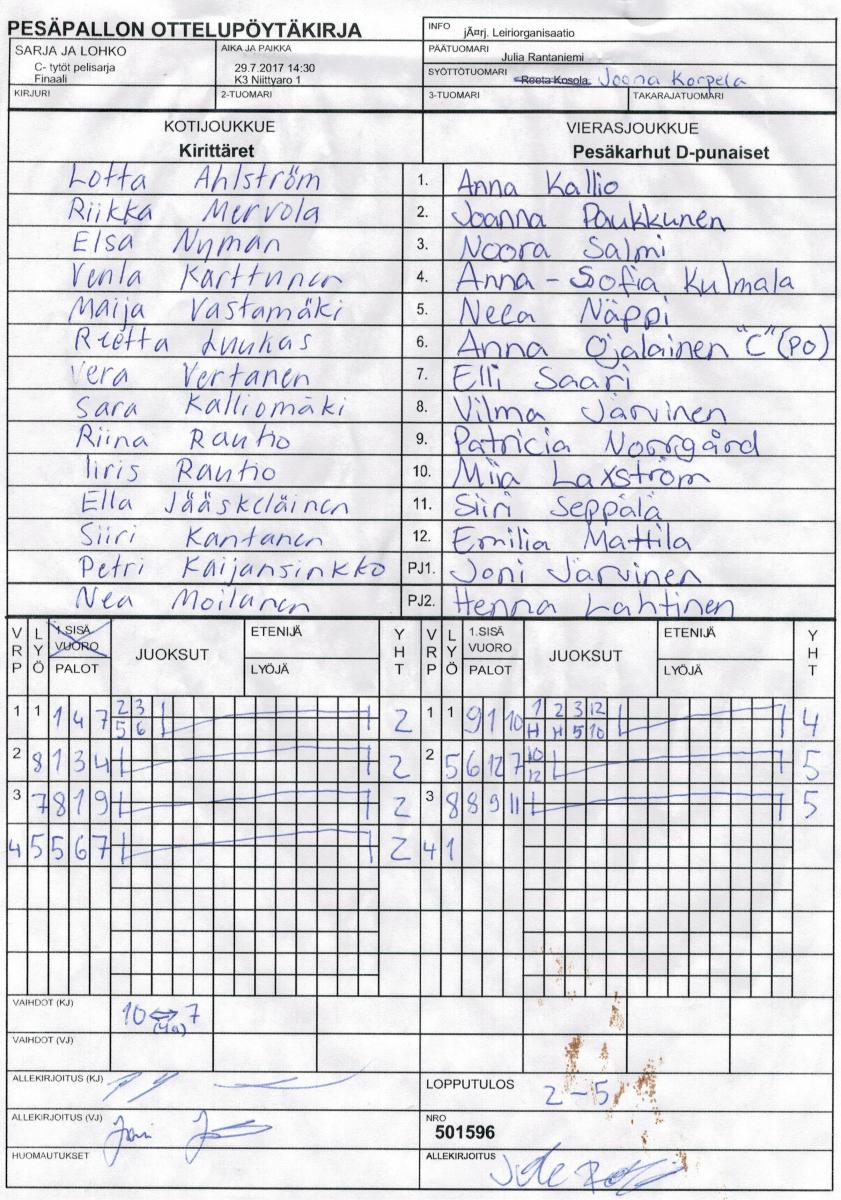 PESÄPALLON OTTELUPÖYTÄKIRJA
INFO jÃ¤rj. Leiriorganisaatio
SARJA JA LOHKO
C- tytöt pelisarja
Finaali
AIKA JA PAIKKA
29.7.2017 14:30
K3 Niittyaro 1
PÄÄTUOMARI
Julia Rantaniemi
SYÖTTÖTUOMARI Reeta Kosola Joona Korpela
KIRJURI 2-TUOMARI 3-TUOMARI TAKARAJATUOMARI
KOTIJOUKKUE VIERASJOUKKUE
Kirittäret Pesäkarhut D-punaiset
Lotta Ahlström 1. Anna Kallio
Riikka Mervola 2. Joanna Paukkunen
Elsa Nyman 3. Noora Salmi
Venla Karttunen 4. Anna-Sofia Kulmala
Maija Vastamäki 5. Neea Näppi
Reetta Luukas 6. Anna Ojalainen "C" (PO)
Vera Vertanen 7. Elli Saari
Sara Kalliomäki 8. Vilma Järvinen
Riina Rautio 9. Patricia Norrgård
Iiris Rautio 10. Miia Laxström
Ella Jääskeläinen 11. Siiri Seppälä
Siiri Kantanen 12. Emilia Mattila
Petri Kaijansinkko PJ1. Joni Järvinen
Nea Moilanen PJ2. Henna Lahtinen
VRP LYÖ 1.SISÄ VUORO PALOT JUOKSUT ETENIJÄ LYÖJÄ YHT VRP LYÖ 1.SISÄ VUORO PALOT JUOKSUT ETENIJÄ LYÖJÄ YHT
1 1 1 4 7 2 3 2 1 1 9 1 10 1 2 3 12 4
5 6 H H 5 10
2 8 1 3 4 2 2 5 6 12 7 10 5
12
3 7 8 1 9 2 3 8 8 9 11 5
4 5 5 6 7 2 4 1
VAIHDOT (KJ) 10 ⇔ 7
(4a)
VAIHDOT (VJ)
ALLEKIRJOITUS (KJ)
LOPPUTULOS 2-5
ALLEKIRJOITUS (VJ)
NRO
501596
HUOMAUTUKSET
ALLEKIRJOITUS